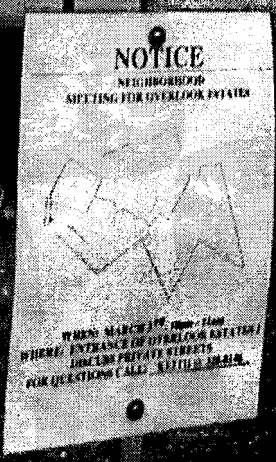 NOTICE
NEIGHBORHOOD
MEETING FOR OVERLOOK ESTATES
WHEN: MARCH
WHERE: ENTRANCE OF OVERLOOK ESTATES
DISCUSS PRIVATE STREETS
FOR QUESTIONS CALL: KEITH @